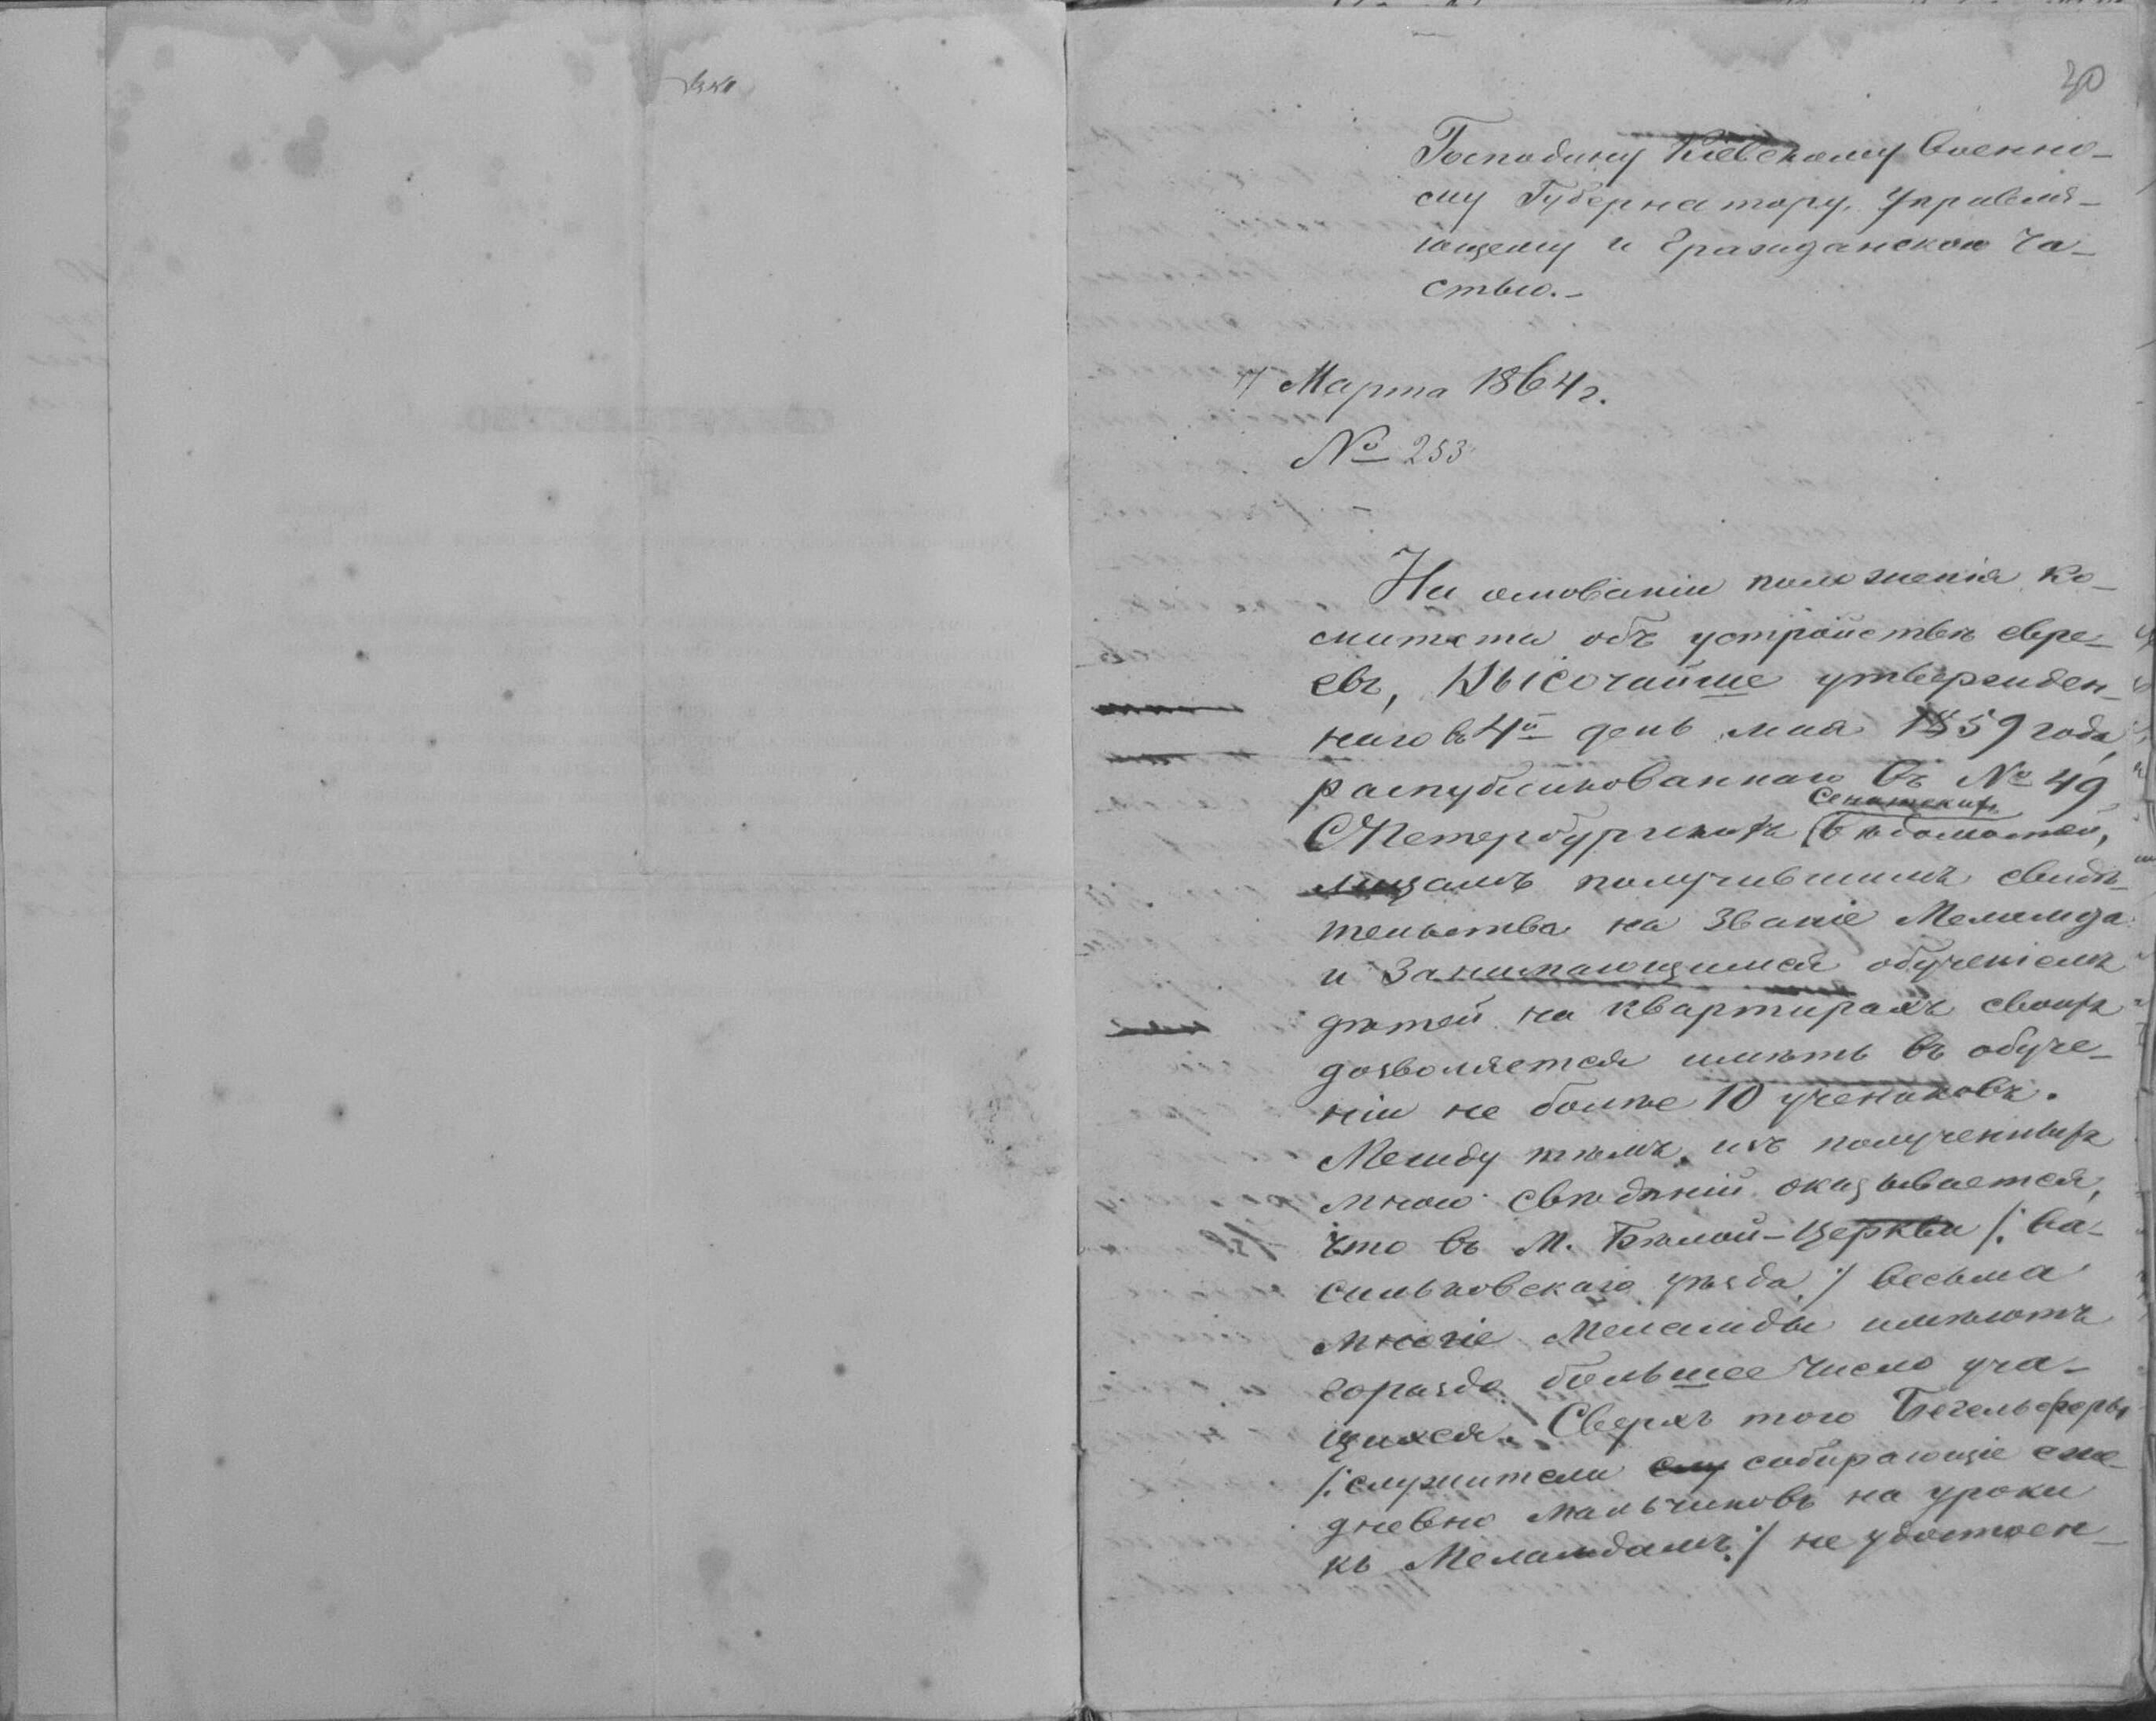 30
Господину Кіевскому Военно-
му Губернатору, Управля-
ющему и Гражданскою ча-
стью.-
7 Марта 1864 г.
№ 253
На основаніи положенія Ко-
митета объ устройствѣ евре-
евъ, Высочайше утвержден-
наго въ 4й день мая 1859 года,
распубликованнаго въ № 49
Сенатскихъ
СПетербургскихъ Вѣдомостей,
лицамъ получившимъ свидѣ-
тельства на званіе Меламда
и занимающимся обученіемъ
дѣтей на квартирахъ своихъ
дозволяется имѣть въ обуче-
ніи не болѣе 10 учениковъ.
Между тѣмъ, изъ полученныхъ
мною свѣдѣній оказывается,
что въ М. Бѣлой-Церкви /: Ва-
сильковскаго уѣзда :/ весьма
многіе Меламды имѣютъ
гораздо большее число уча-
щихся. Сверхъ того Бегельферы
/: служители слу собирающіе еже-
дневно мальчиковъ на уроки
къ Меламдамъ :/ не удостоен-